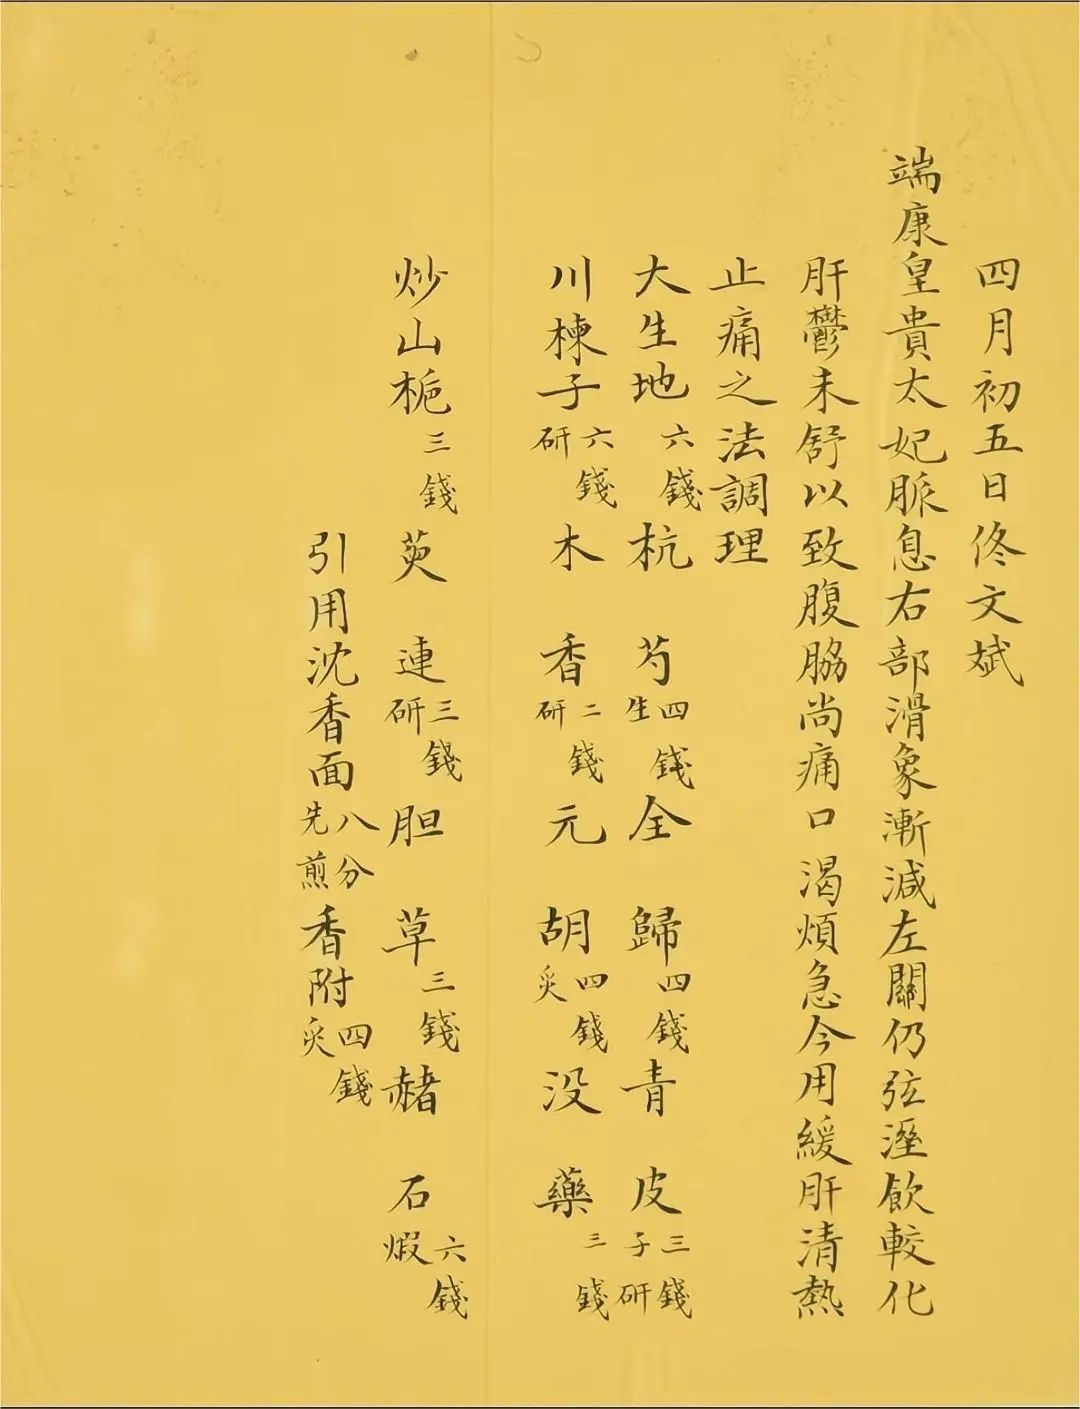 四月初五日佟文斌
端康皇貴太妃脈息右部滑象漸減左關仍弦溼飲較化
肝鬱未舒以致腹脇尚痛口渴煩急今用緩肝清熱
止痛之法調理
大生地六錢 杭芍四錢生 全歸四錢 青皮三錢子研
川楝子六錢研 木香二錢研 元胡四錢炙 没藥三錢
炒山梔三錢 萸連三錢研 胆草三錢 赭石六錢煆
引用沈香面八分先煎 香附四錢炙